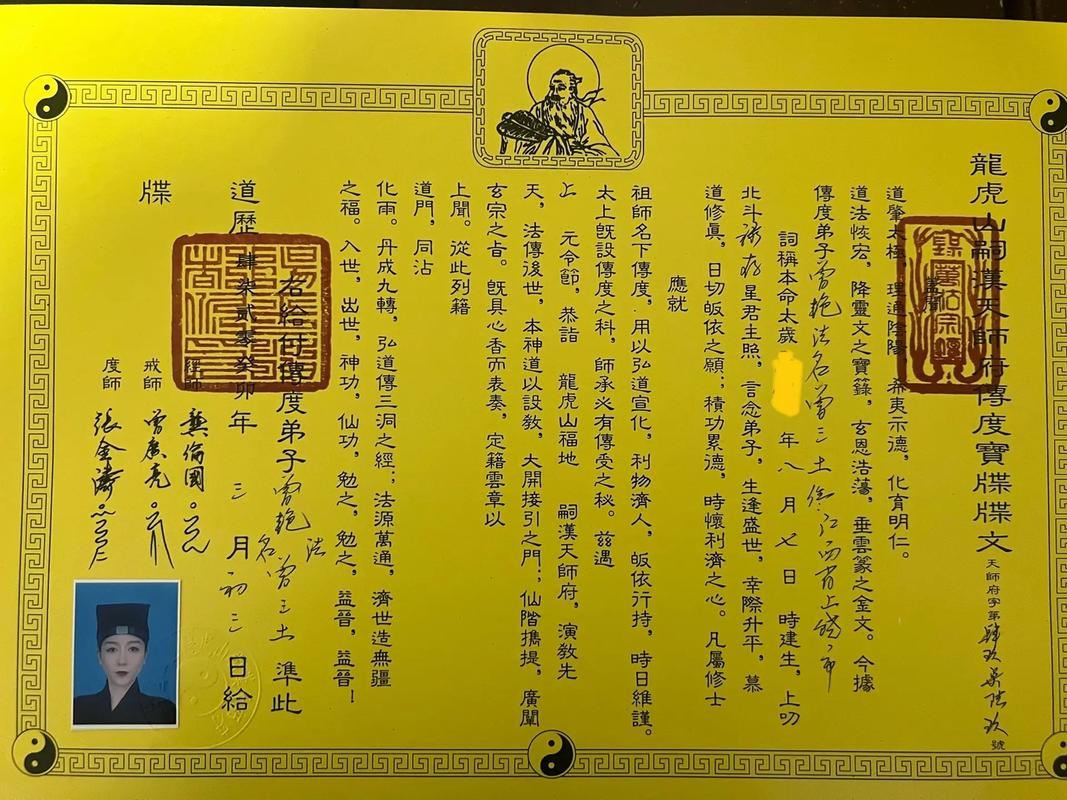 龍虎山嗣漢天師府傳度寶牒牒文
天師府字第 號
道肇太極，理通陰陽，希夷示德，化育明仁。
道法恢宏，降靈文之寶籙，玄恩浩蕩，垂雲篆之金文。今據
傳度弟子曾艷法名曾三土 江西省上饒市
詞稱本命太歲 年八月七日 時建生，上叨
北斗祿存星君主照，言念弟子，生逢盛世，幸際升平，慕
道修眞，日切皈依之願；積功累德，時懷利濟之心。凡屬修士
應就
祖師名下傳度，用以弘道宣化，利物濟人，皈依行持，時日維謹。
太上旣設傳度之科，師承必有傳受之秘。兹遇
上 元令節，恭詣 龍虎山福地 嗣漢天師府，演教先
天，法傳後世，本神道以設教，大開接引之門；仙階攜提，廣闡
玄宗之旨。旣具心香而表奏，定籍雲章以
上聞。從此列籍
道門，同沾
化雨。丹成九轉，弘道傳三洞之經；法源萬通，濟世造無疆
之福。入世，出世，神功，仙功，勉之，勉之，益晉，益晉！
右給付傳度弟子曾艷法名曾三土 準此
道歷肆柒貳零癸卯年三月初三日給
牒
經師 龔倫國
戒師 曾廣亮
度師 張金濤